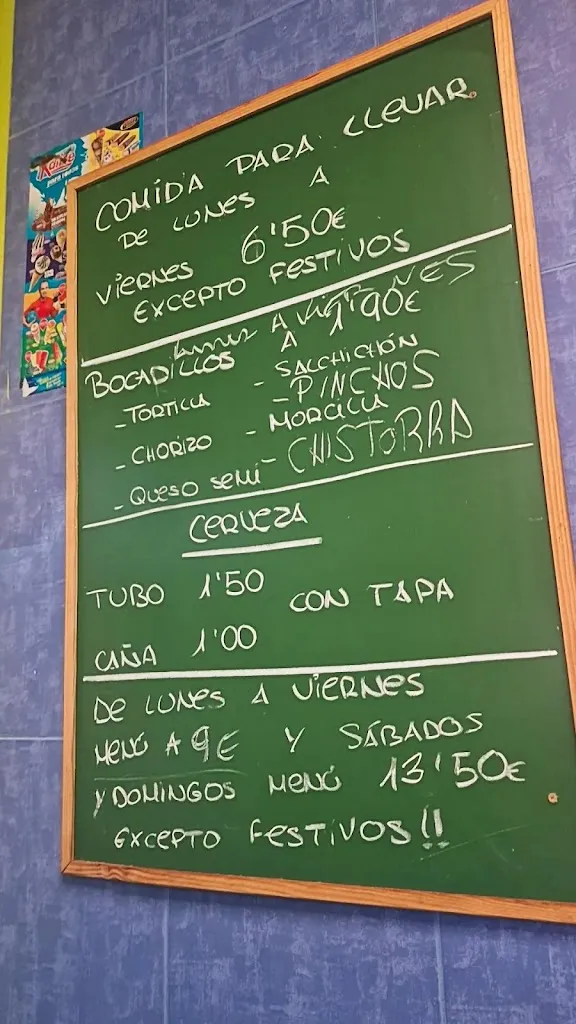 Kalise
para todos
COMIDA PARA LLEVAR
DE LUNES A
VIERNES 6'50€
EXCEPTO FESTIVOS
Lunes A VIERNES
BOCADILLOS A 1'90€
- TORTILLA - SALCHICHÓN
- CHORIZO - PINCHOS
- QUESO SEMI - MORCILLA
- CHISTORRA
CERVEZA
TUBO 1'50 CON TAPA
CAÑA 1'00
DE LUNES A VIERNES
MENÚ A 9€ Y SÁBADOS
Y DOMINGOS MENÚ 13'50€
EXCEPTO FESTIVOS!!